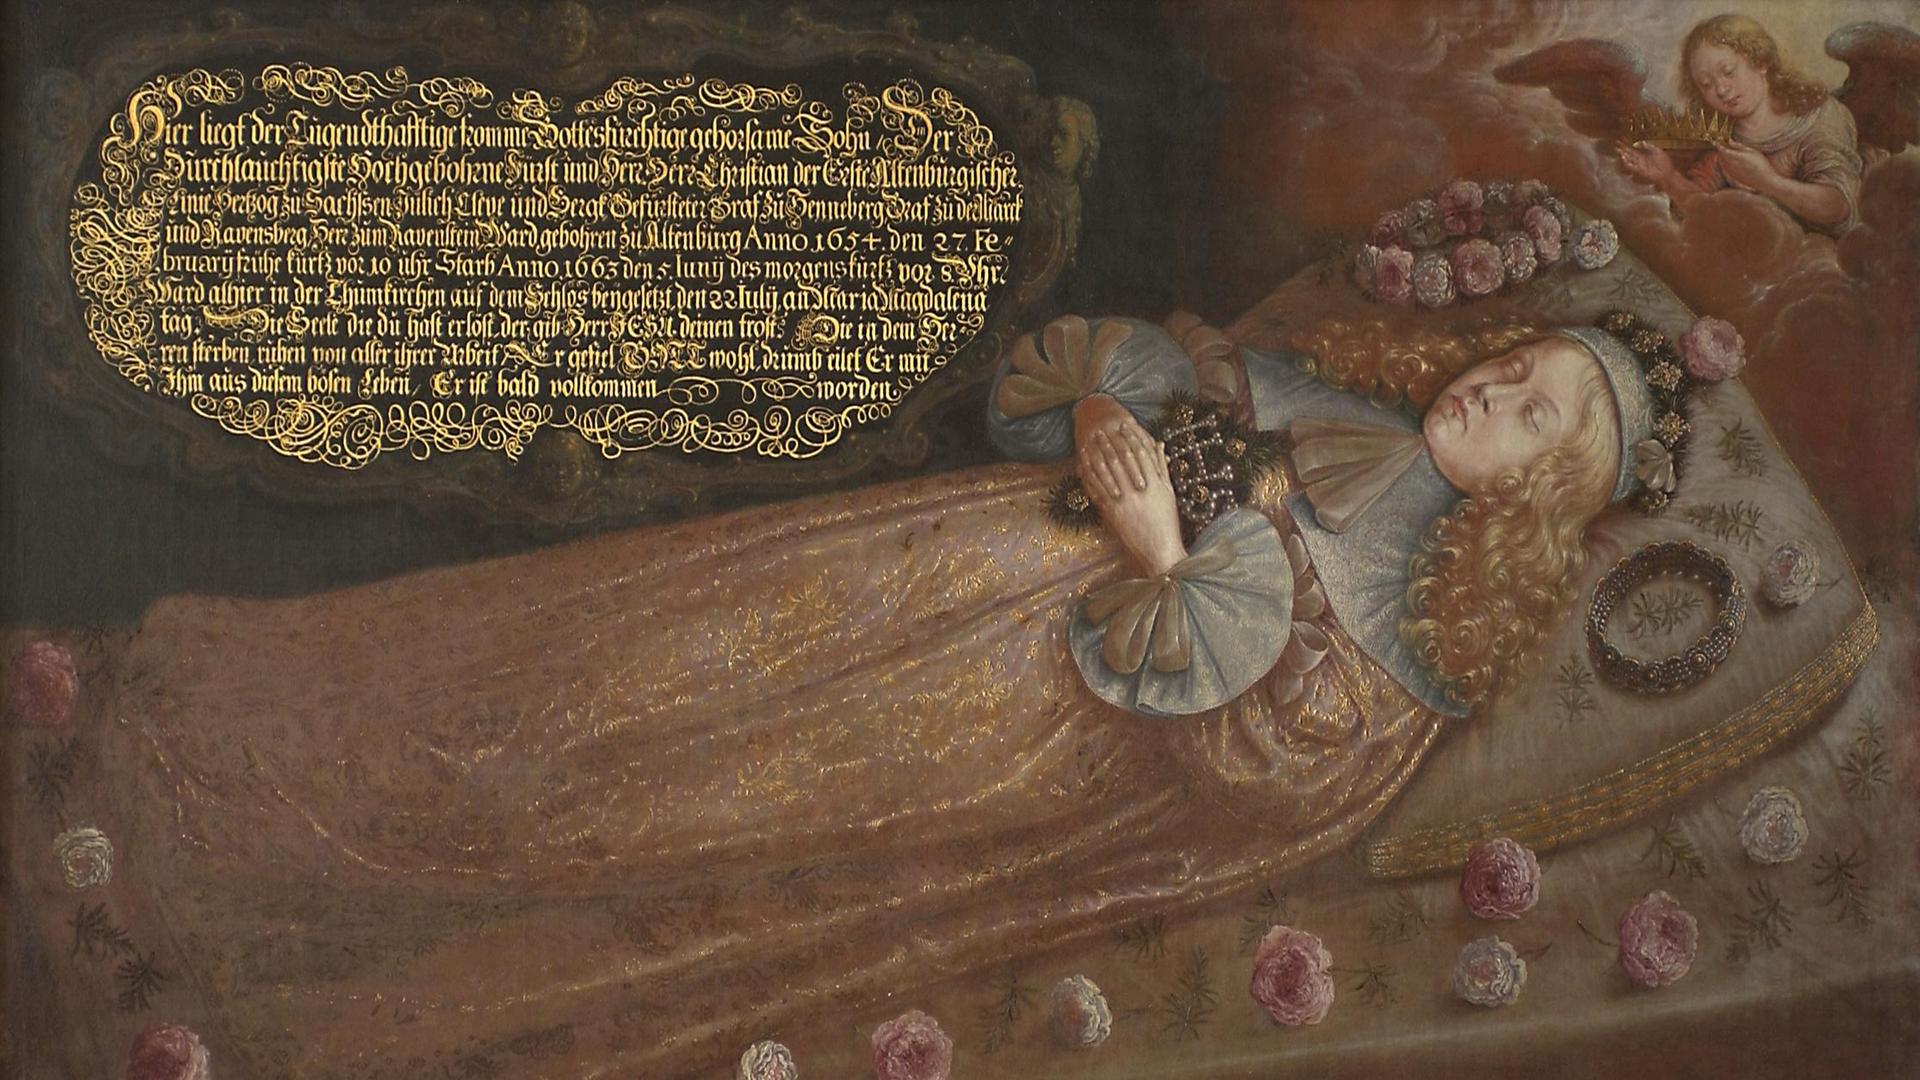 Hier liegt der Tugendthafftige fromme Gottesfürchtige gehorsame Sohn / Der
Durchlauchtigste Hochgebohrne Fürst und Herr Herr Christian der Erste Altenburgischer
Linie Hertzog zu Sachssen Jülich Cleve und Bergk Gefürsteter Graf zu Henneberg Graf zu der Marck
und Ravensberg Herr zum Ravenstein Ward gebohren zu Altenburg Anno 1654. den 27. Fe-
bruarÿ frühe kurtz vor 10 uhr Starb Anno 1663 den 5. Iunÿ des morgens kurtz vor 8 Uhr.
Ward alhier in der Thumkirchen auf dem Schlos beÿgesetzt den 22 Iulÿ an Maria Magdalena
tag. Die Seele die du hast erlöst, der gib Herr JESU deinen trost. Die in dem Her-
ren sterben, ruhen von aller ihrer Arbeit / Er gefiel GOTT wohl, drumb eilet Er mit
Ihm aus diesem bösen Leben / Er ist bald vollkommen worden.